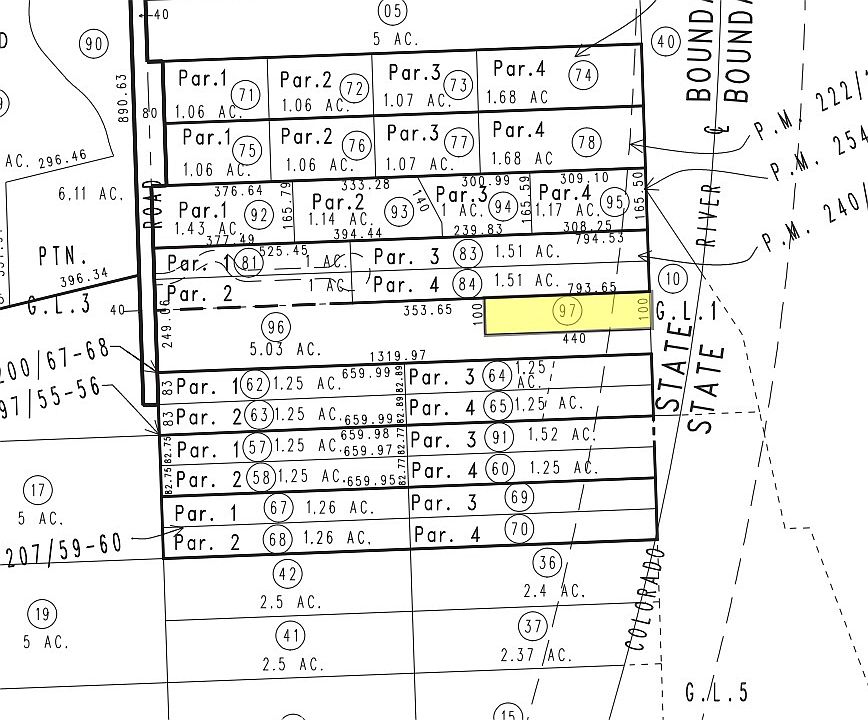 40
05
5 AC.
BOUNDA
BOUNDA
90
40
890.63
80
Par.1 71
1.06 AC.
Par.2 72
1.06 AC.
Par.3 73
1.07 AC.
Par.4 74
1.68 AC
P.M. 222/
Par.1 75
1.06 AC.
Par.2 76
1.06 AC.
Par.3 77
1.07 AC.
Par.4 78
1.68 AC
P.M. 254
AC. 296.46
6.11 AC.
ROAD
376.64
Par.1 92
1.43 AC.
377.49
165.79
333.28
Par.2 93
1.14 AC.
394.44
140
300.99
Par.3 94
1 AC.
239.83
165.59
309.10
Par.4 95
1.17 AC.
308.25
165.50
RIVER
P.M. 240/
PTN.
396.34
G.L.3
525.45
Par. 1 81 1 AC.
Par. 2 1 AC.
Par. 3 83 1.51 AC.
794.53
Par. 4 84 1.51 AC.
793.65
10
40
249.
353.65
100
97
100
G.L.1
440
96
5.03 AC.
1319.97
STATE
STATE
200/67-68
97/55-56
83 Par. 1 62 1.25 AC. 659.99 82.89
Par. 3 64 1.25 AC.
83 Par. 2 63 1.25 AC. 659.99 82.89
Par. 4 65 1.25 AC.
82.75 Par. 1 57 1.25 AC. 659.98 659.97 82.77
Par. 3 91 1.52 AC.
82.75 Par. 2 58 1.25 AC. 659.95 82.77
Par. 4 60 1.25 AC.
Par. 1 67 1.26 AC.
Par. 3 69
Par. 2 68 1.26 AC.
Par. 4 70
17
5 AC.
207/59-60
42
2.5 AC.
36
2.4 AC.
COLORADO
19
5 AC.
41
2.5 AC.
37
2.37 AC.
G.L.5
15